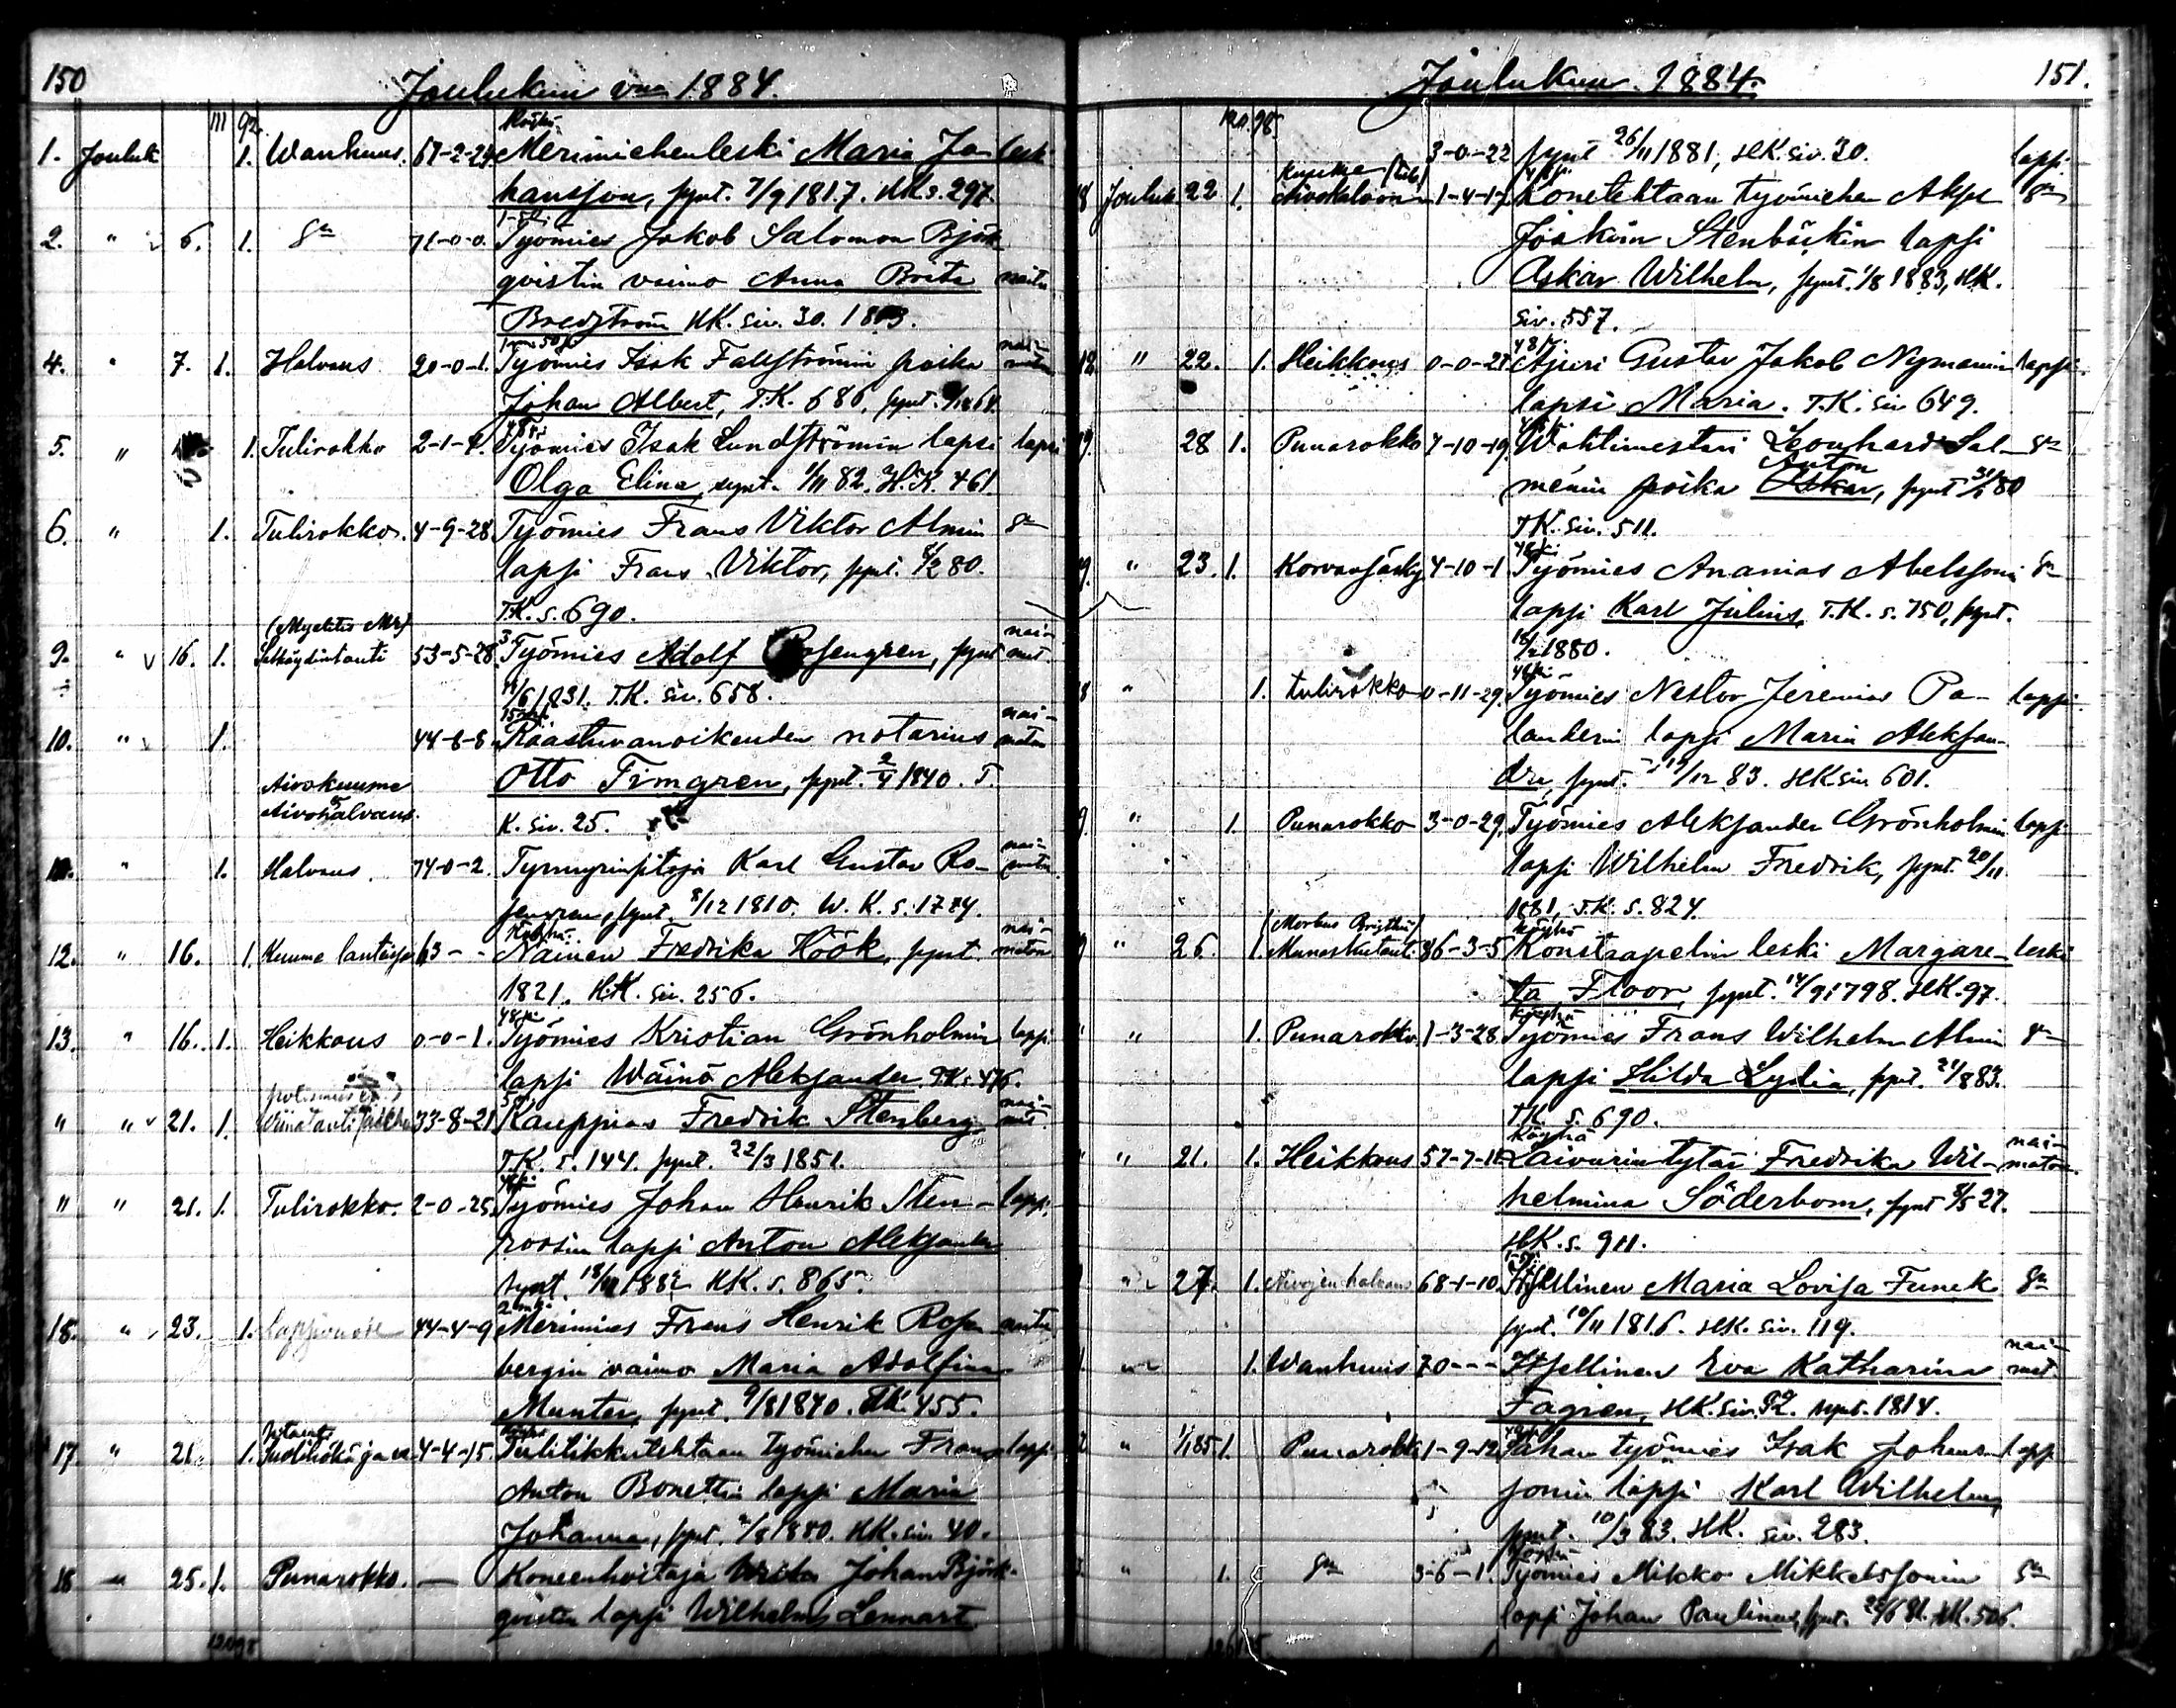 150
Joulukuu vna 1884.
111 92
1. Jouluk 1. Wanhuus. 67-2-24 Merimiehenleski Maria Jo- leski
hansson, synt. 7/9 1817. HK s. 297.
2. " 6. 1. Sm 71-0-0. Työmies Jakob Salomon Björk
qvistin vaimo Anna Brita naitu
Bredström HK. siv. 30. 1813.
1 m 50 p nai-
4. " 7. 1. Halvaus 20-0-1. Työmies Isak Fallströmin poika maton
Johan Albert, T.K. 686, synt. 6/12 64.
5. " 1. Tulirokko 2-1-4. Työmies Isak Lundströmin lapsi lapsi
Olga Elina, synt. 1/11 82. H.K. 461.
6. " 1. Tulirokko. 4-9-28 Työmies Frans Viktor Almin Sm
lapsi Frans Viktor, synt. 8/2 80.
T.K. s. 690.
(Myelitis Mr) nai-
9. " 16. 1. Selkäydintauti 53-5-28 Työmies Adolf Rosengren, synt. nut.
11/6 1831. T.K. siv. 658.
nai-
10. " 1. 44-8-8 Raastuvanoikeuden notarius maton
Otto Timgren, synt. 2/4 1840. T.
Aivokuume
Aivohalvaus. K. siv. 25.
nai-
" 1. Halvaus. 74-0-2. Tynnyrinsitoja Karl Gustav Ro-
sengren, synt. 8/12 1810. W.K. s. 1774.
nai-
12. " 16. 1. Kuume 63-- Nainen Fredrika Höök, synt. maton
1821. HK. siv. 256.
48 p:
13. " 16. 1. Heikkous 0-0-1. Työmies Kristian Grönholmin lapsi
lapsi Wäinö Aleksander. TK. 476.
nai-
" " 21. 1. Wiinatauti 33-8-21 Kauppias Fredrik Stenberg nut.
T.K. s. 144. synt. 22/3 1851.
" " 21. 1. Tulirokko. 2-0-25. Työmies Johan Henrik Sten- lapsi
roosin lapsi Anton Aleksander
synt. 18/11 1882 HK. s. 865.
16. " 23. 1. Lapsivuode 44-4-9 Merimies Frans Henrik Rosen- naitu
bergin vaimo Maria Adolfina
Munter, synt. 9/8 1840. HK. 455.
17 " 21. 1. 4-4-15. Tulitikkutehtaan työmiehen Frans lapsi
Anton Bonettin lapsi Maria
Johanna, synt. 2/8 1880. HK. siv. 40.
18 " 25. 1. Punarokko. — Koneenhoitaja Johan Björk-
qvistin lapsi Wilhelm Lennart
120 98
151.
Joulukuu 1884.
120. 98.
3-0-22 synt 26/11 1881, HK. siv. 30. lapsi
Kuume (tub)
18 Jouluk 22 1. Aivokalvon 1-4-17 Konetehtaan työmiehen Aksel Sm
Joakim Stenbäckin lapsi
Oskar Wilhelm, synt. 1/8 1883, HK.
siv. 557.
48 p.
12. " 22. 1. Heikkous 0-0-21 Ajuri Gustav Jakob Nymanin lapsi
lapsi Maria. T.K. siv 649.
19. 28 1. Punarokko 4-10-19. Wahtimestari Leonhard Sal- Sm
Anton
ménin poika Oskar, synt 31/1 80
TK. siv. 511.
48 p:
19. " 23. 1. Korvansärky 4-10-1 Työmies Ananias Abelssonin Sm
lapsi Karl Julius, T.K. s. 750, synt.
18/1 1880.
18 " 1. tulirokko 0-11-29. Työmies Nestor Jeremias Pa- lapsi
landerin lapsi Maria Aleksan-
dra, synt. 19/12 83. HK siv 601.
9. " 1. Punarokko 3-0-29. Työmies Aleksander Grönholmin lapsi
lapsi Wilhelm Fredrik, synt. 20/11
1881, T.K. s. 824.
(Morbus Brigthii) köyhä
" 26. 1. Munuaistauti 86-3-5 Konstaapelin leski Margare- leski
ta Floor, synt. 14/9 1798. HK. 97.
köyhä
" 1. Punarokko. 1-3-28. Työmies Frans Wilhelm Almin Sm
lapsi Hilda Lydia, synt. 21/8 83.
TK. s. 690.
Köyhä nai-
" 21. 1. Heikkous 57-7-11 Laivurintytär Fredrika Wil- maton.
helmina Söderbom, synt 8/5 27.
HK. s. 911.
" 27. 1. Aivojen halvaus 68-1-10 Itsellinen Maria Lovisa Funck Sm
synt. 10/11 1816. HK. siv. 119.
nai-
" 1. Wanhuus 70--- Itsellinen Eva Katharina nut
Fagrén, HK. siv. 92. synt. 1814.
" 1/1 85 1. Punarokko 1-9-12 Sahan työmies Isak Johans- lapsi
sonin lapsi Karl Wilhelm,
synt. 10/3 83. HK. siv. 283.
" 1. Sm 3-6-1. Työmies Mikko Mikkelssonin Sm
lapsi Johan Paulinus, synt. 22/6 81. HK. 506.